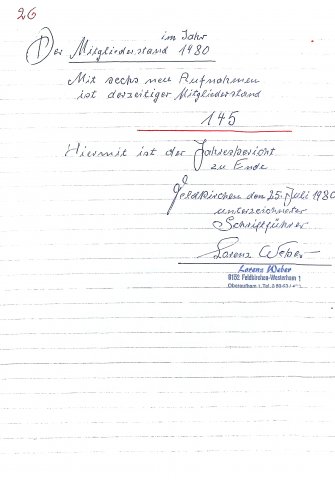 26
im Jahr
Der Mitgliederstand 1980
Mit sechs neu Aufnahmen
ist derzeitiger Mitgliederstand
145
Hiermit ist der Jahresbericht
zu Ende
Feldkirchen den 25. Juli 1980
unterzeichneter
Schriftführer
Lorenz Weber
Lorenz Weber
8152 Feldkirchen-Westerham 1
Tel.